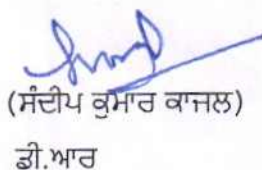 (ਸੰਦੀਪ ਕੁਮਾਰ ਕਾਜਲ)
ਡੀ.ਆਰ